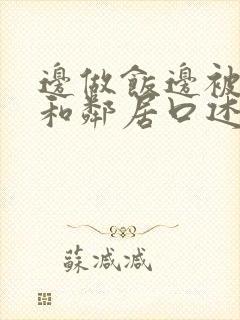 邊做飯邊被
和鄰居口述
蘇減減